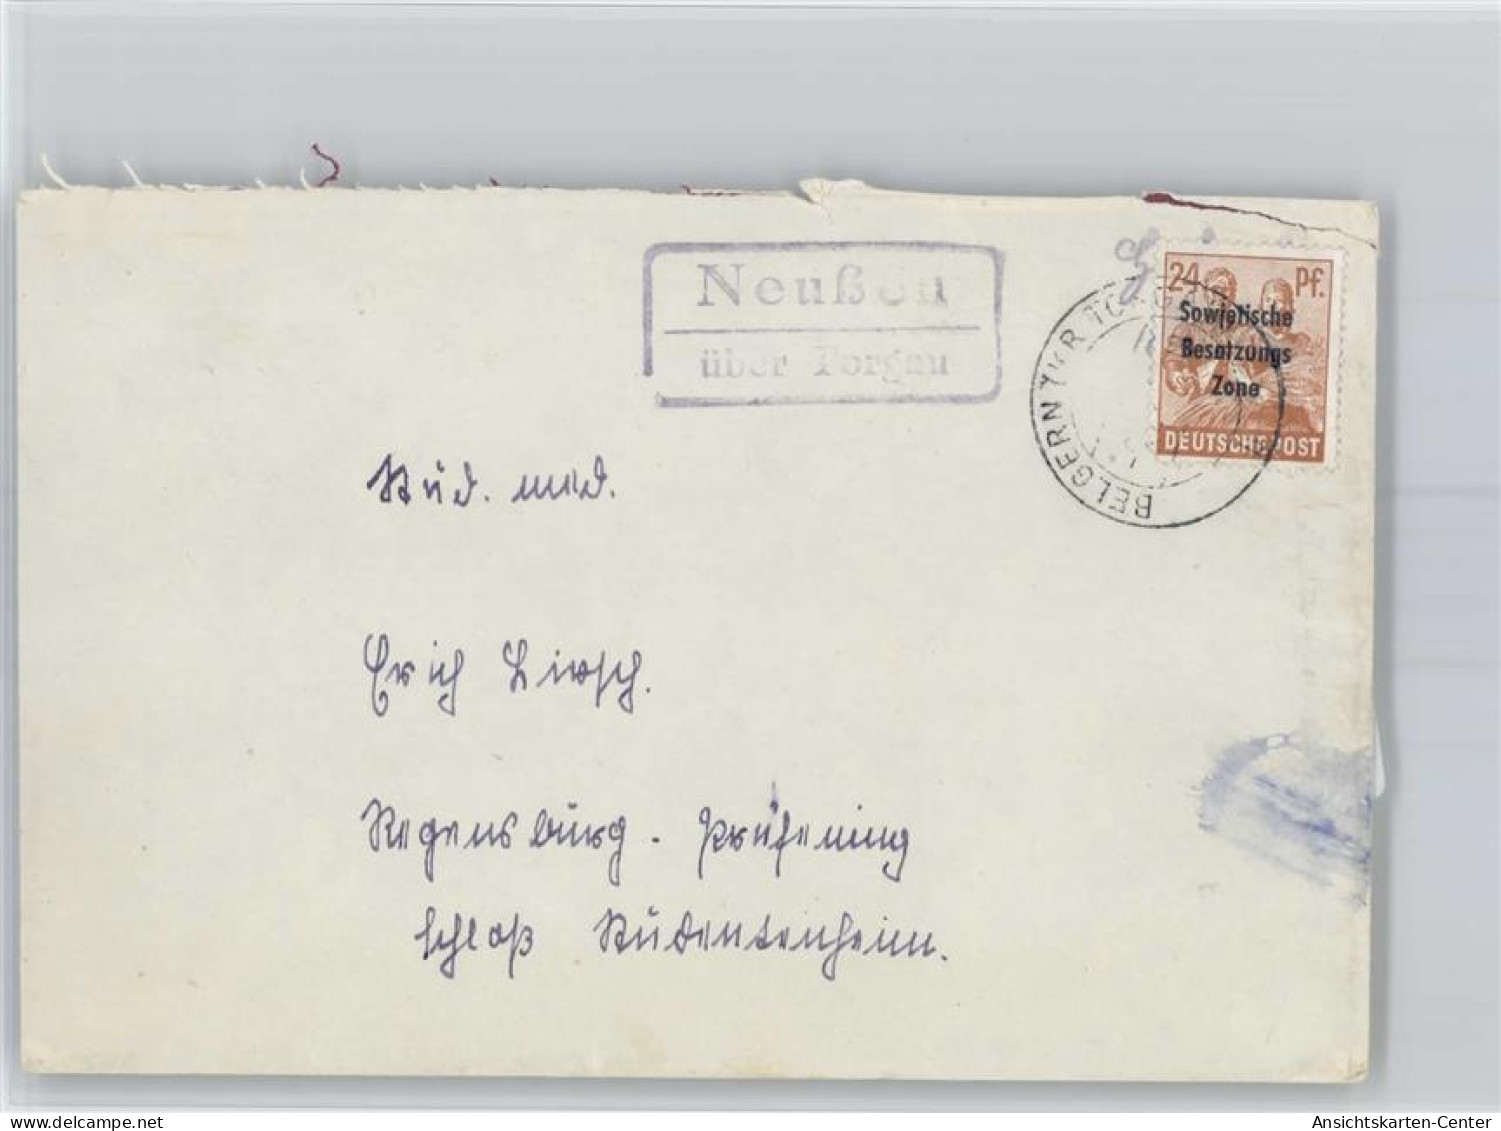 Neußen
über Torgau
24 Pf.
Sowjetische
Besatzungs
Zone
DEUTSCHE POST
BELGERN
Stud. med.
Erich Hirsch.
Regensburg - Prüfening
Schloß Studentenheim.
delcampe.net
Ansichtskarten-Center